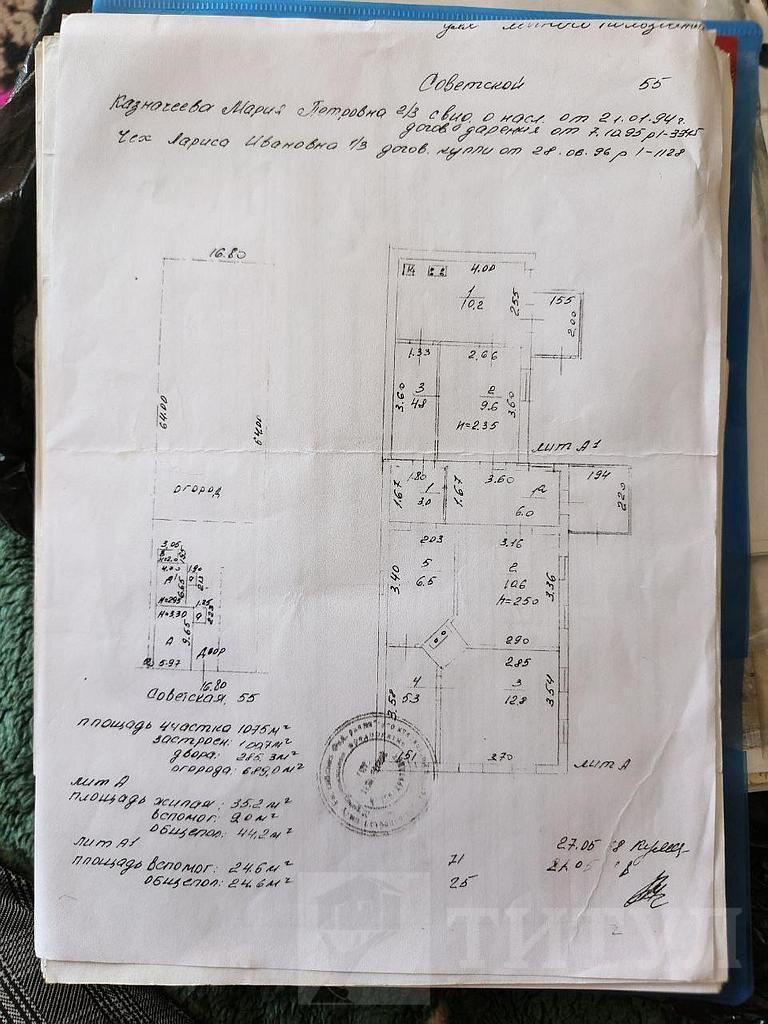 Советской 55
Казначеева Мария Петровна 2/3 свид. о насл. от 21.01.94г.
догов дарения от 7.10.95 р1-3345
Чех Лариса Ивановна 1/3 догов. купли от 28.08.96 р 1-1128
16.80
64.00
64.00
огород
3.05
4.00
1.90
А1
а
6.65
2.13
H=2.95
1.25
H=3.30
а
2.23
9.65
А
двор
5.97
16.80
Советская, 55
4.00
1
10,2
2.55
155
2,00
1.33
2.66
3.60
3
4.8
2
9.6
3.60
H=2.35
лит А1
1.80
1.67
1
3.0
1.67
3.60
6.0
194
220
203
3.16
5
6.5
3.40
2
10.6
3.36
h=250
290
285
4
5.3
3.58
3
12.8
3.54
151
3.70
лит А
площадь участка 1075м²
застроен: 100,7м²
двора: 285.3м²
огорода: 689,0м²
лит А
площадь жилая: 35.2 м²
вспомог: 9.0м²
общепол: 44,2м²
лит А1
площадь вспомог: 24.6м²
общепол: 24.6м²
71
25
27.05
ТИТУЛ